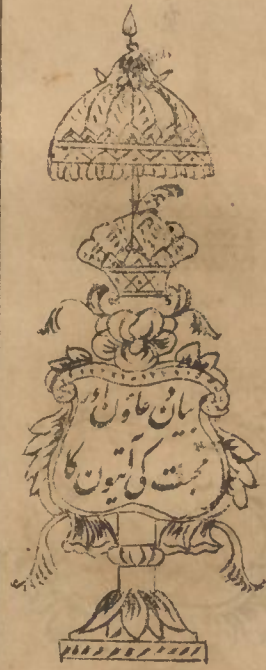 بیان دعاؤن اور
محبت کی آیتون کا